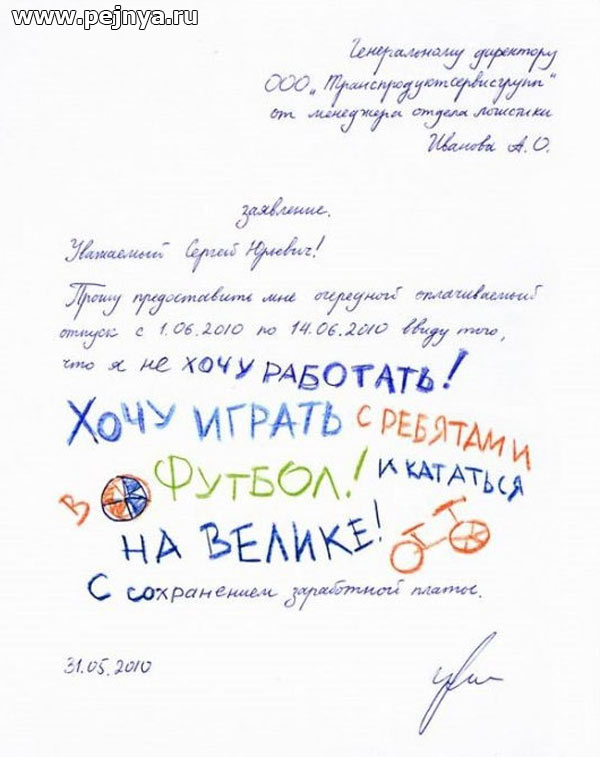 www.pejnya.ru
Генеральному директору
ООО „Транспродуктсервисгрупп"
от менеджера отдела логистики
Иванова А.О.
заявление.
Уважаемый Сергей Юрьевич!
Прошу предоставить мне очередной оплачиваемый
отпуск с 1.06.2010 по 14.06.2010 ввиду того,
что я не ХОЧУ РАБОТАТЬ!
ХОЧУ ИГРАТЬ С РЕБЯТАМИ
В ФУТБОЛ! И КАТАТЬСЯ
НА ВЕЛИКЕ!
С сохранением заработной платы.
31.05.2010